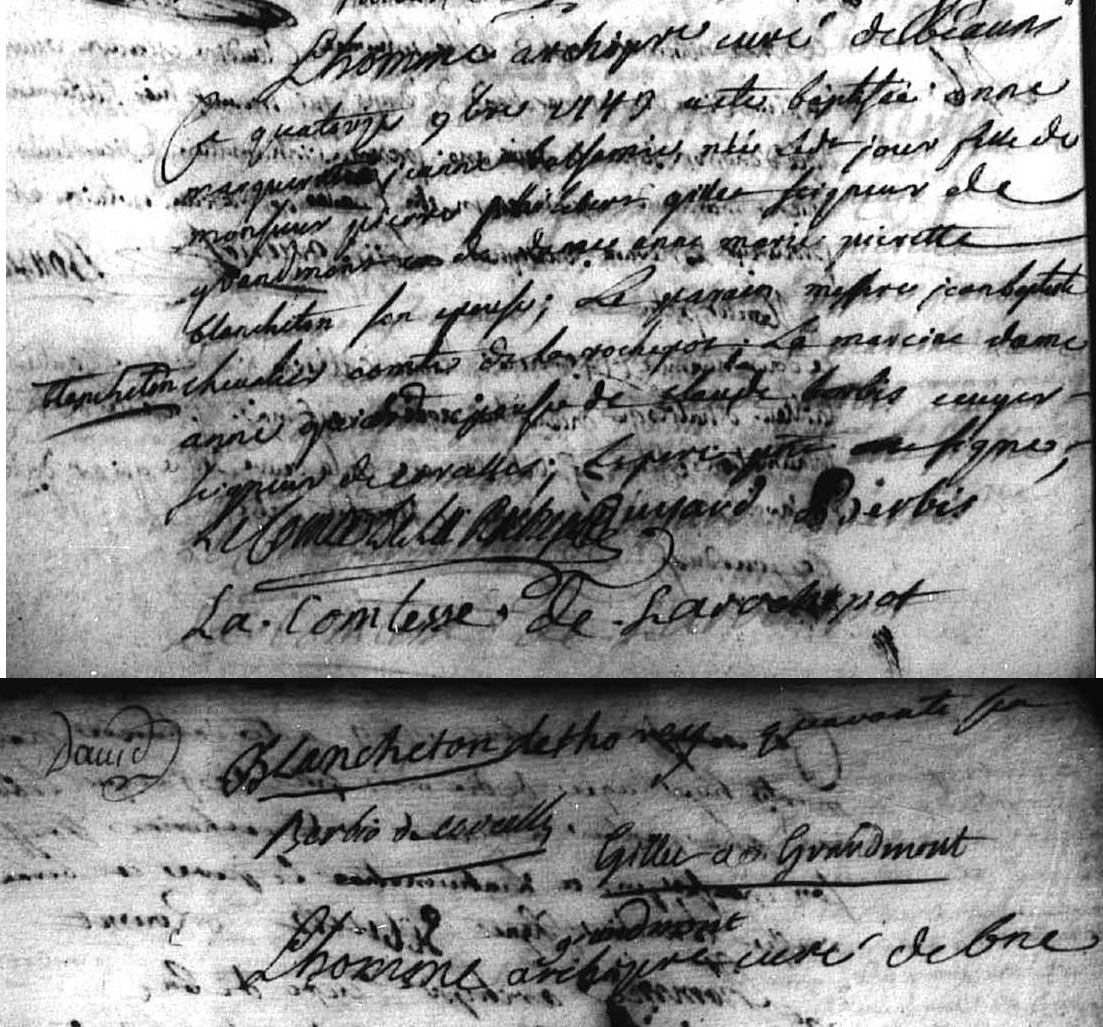 Lhomme archiprê curé de beaune
Le quatorze 9bre 1749 a eté baptisée anne
marguerite jeanne née led. jour fille de
monsieur pierre gilles seigneur de
grandmont et de dame anne marie pierrette
blancheton son epouse; Le parain messire jean baptiste
blancheton chevalier comte de la rochepot. La maraine dame
anne epouse de claude berbis ecuyer
seigneur de corcelles; Le pere signé;
Le Comte De La Rochepot Quirard Berbis
La Comtesse De Larochepot
David Blancheton de thorey
Berbis de corcelles.
Gilles de Grandmont
grandmont
Lhomme archiprê curé de bne